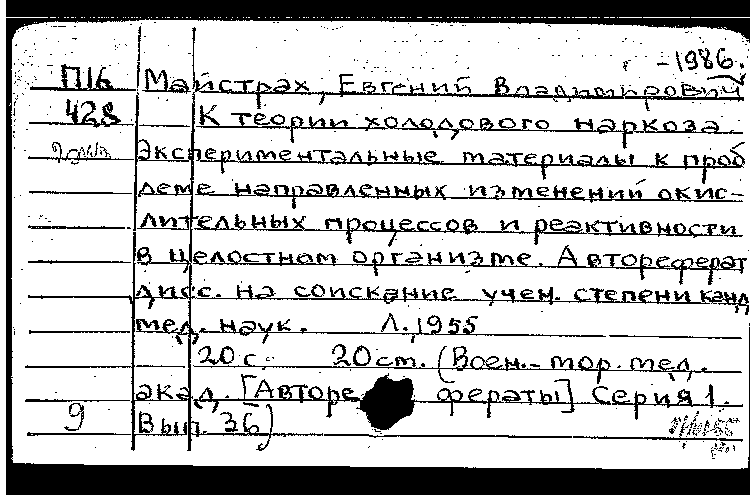 -1986.
П16 Майстрах, Евгений Владимирович
428 К теории холодового наркоза.
Экспериментальные материалы к проб
леме направленных изменений окис-
лительных процессов и реактивности
в целостном организме. Автореферат
дисс. на соискание учен. степени канд
мед. наук. Л., 1955
20 с. 20 см. (Воен.-мор. мед.
акад. [Авторефераты] Серия 1.
9 Вып. 36)